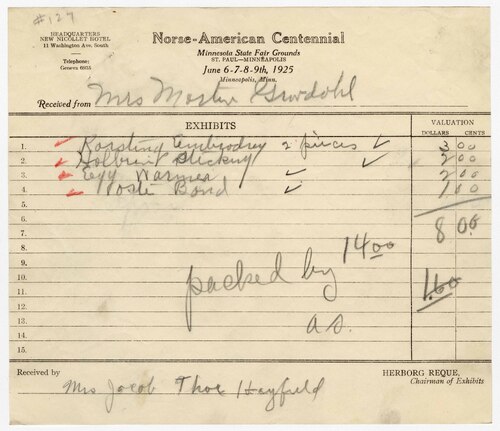 #127
HEADQUARTERS
NEW NICOLLET HOTEL
11 Washington Ave. South
Telephone:
Geneva 6815
Norse-American Centennial
Minnesota State Fair Grounds
ST. PAUL—MINNEAPOLIS
June 6-7-8-9th, 1925
Minneapolis, Minn.
Received from Mrs
EXHIBITS
VALUATION
DOLLARS CENTS
1. 2 pieces 3 00
2. 2 00
3. Egg Warmer 2 00
4. 1 00
5.
6.
7. 8 00
8. 14 00
9.
10. packed by
11. 1.60
12.
13. a.s.
14.
15.
Received by Mrs Jacob Thoe Hayfield
HERBORG REQUE,
Chairman of Exhibits